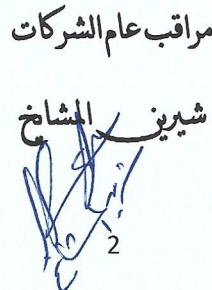 مراقب عام الشركات
شيرين المشايخ
2